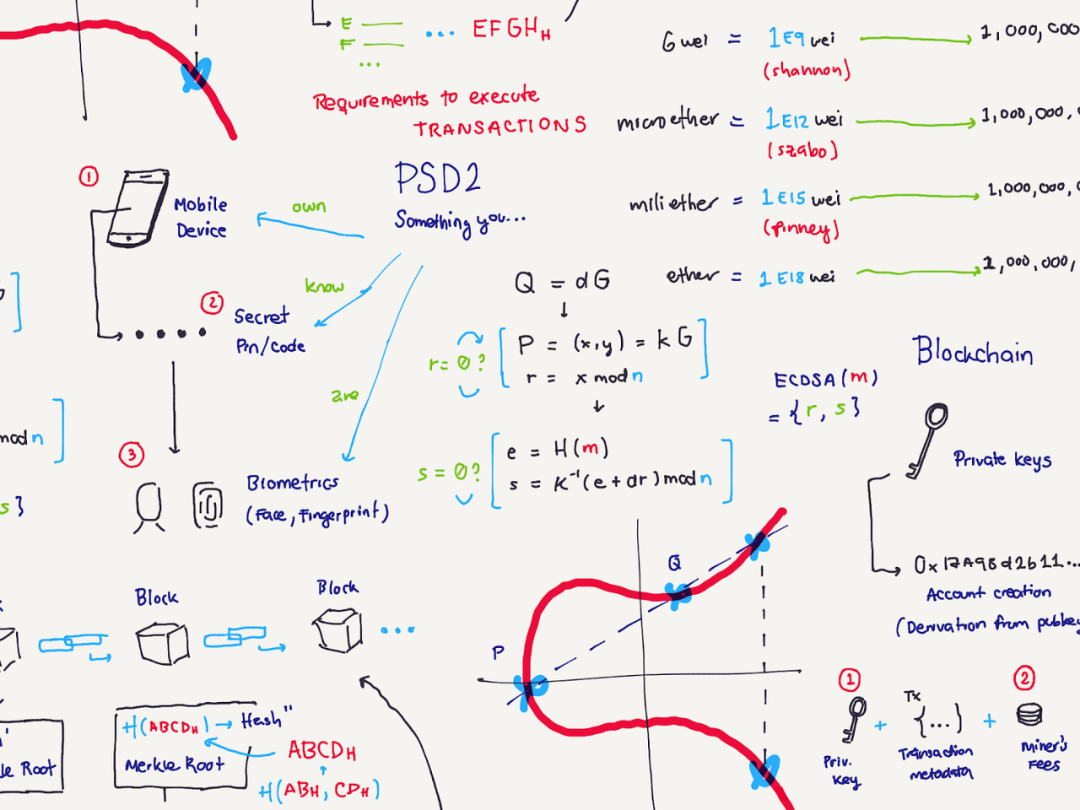 E
F
...
... EFGH_H
Requirements to execute
TRANSACTIONS
Gwei = 1E9 wei
(shannon)
1,000,000
microether = 1E12 wei
(szabo)
1,000,000,
miliether = 1E15 wei
(finney)
1,000,000,
ether = 1E18 wei
1,000,000,
1
Mobile
Device
own
PSD2
Something you...
know
are
2
Secret
Pin/code
3
Biometrics
(Face, Fingerprint)
Q = dG
r = 0?
P = (x,y) = kG
r = x mod n
s = 0?
e = H(m)
s = K⁻¹(e + dr) mod n
ECDSA(m)
= {r, s}
Blockchain
Private keys
0x17A98d2611...
Account creation
(Derivation from pubkey
mod n
s}
Block
Block
...
H(ABCD_H) → Hash"
Merkle Root
ABCD_H
H(AB_H, CD_H)
le Root
P
Q
1
Priv.
Key
+
Tx
{...}
Transaction
metadata
+
2
Miner's
Fees